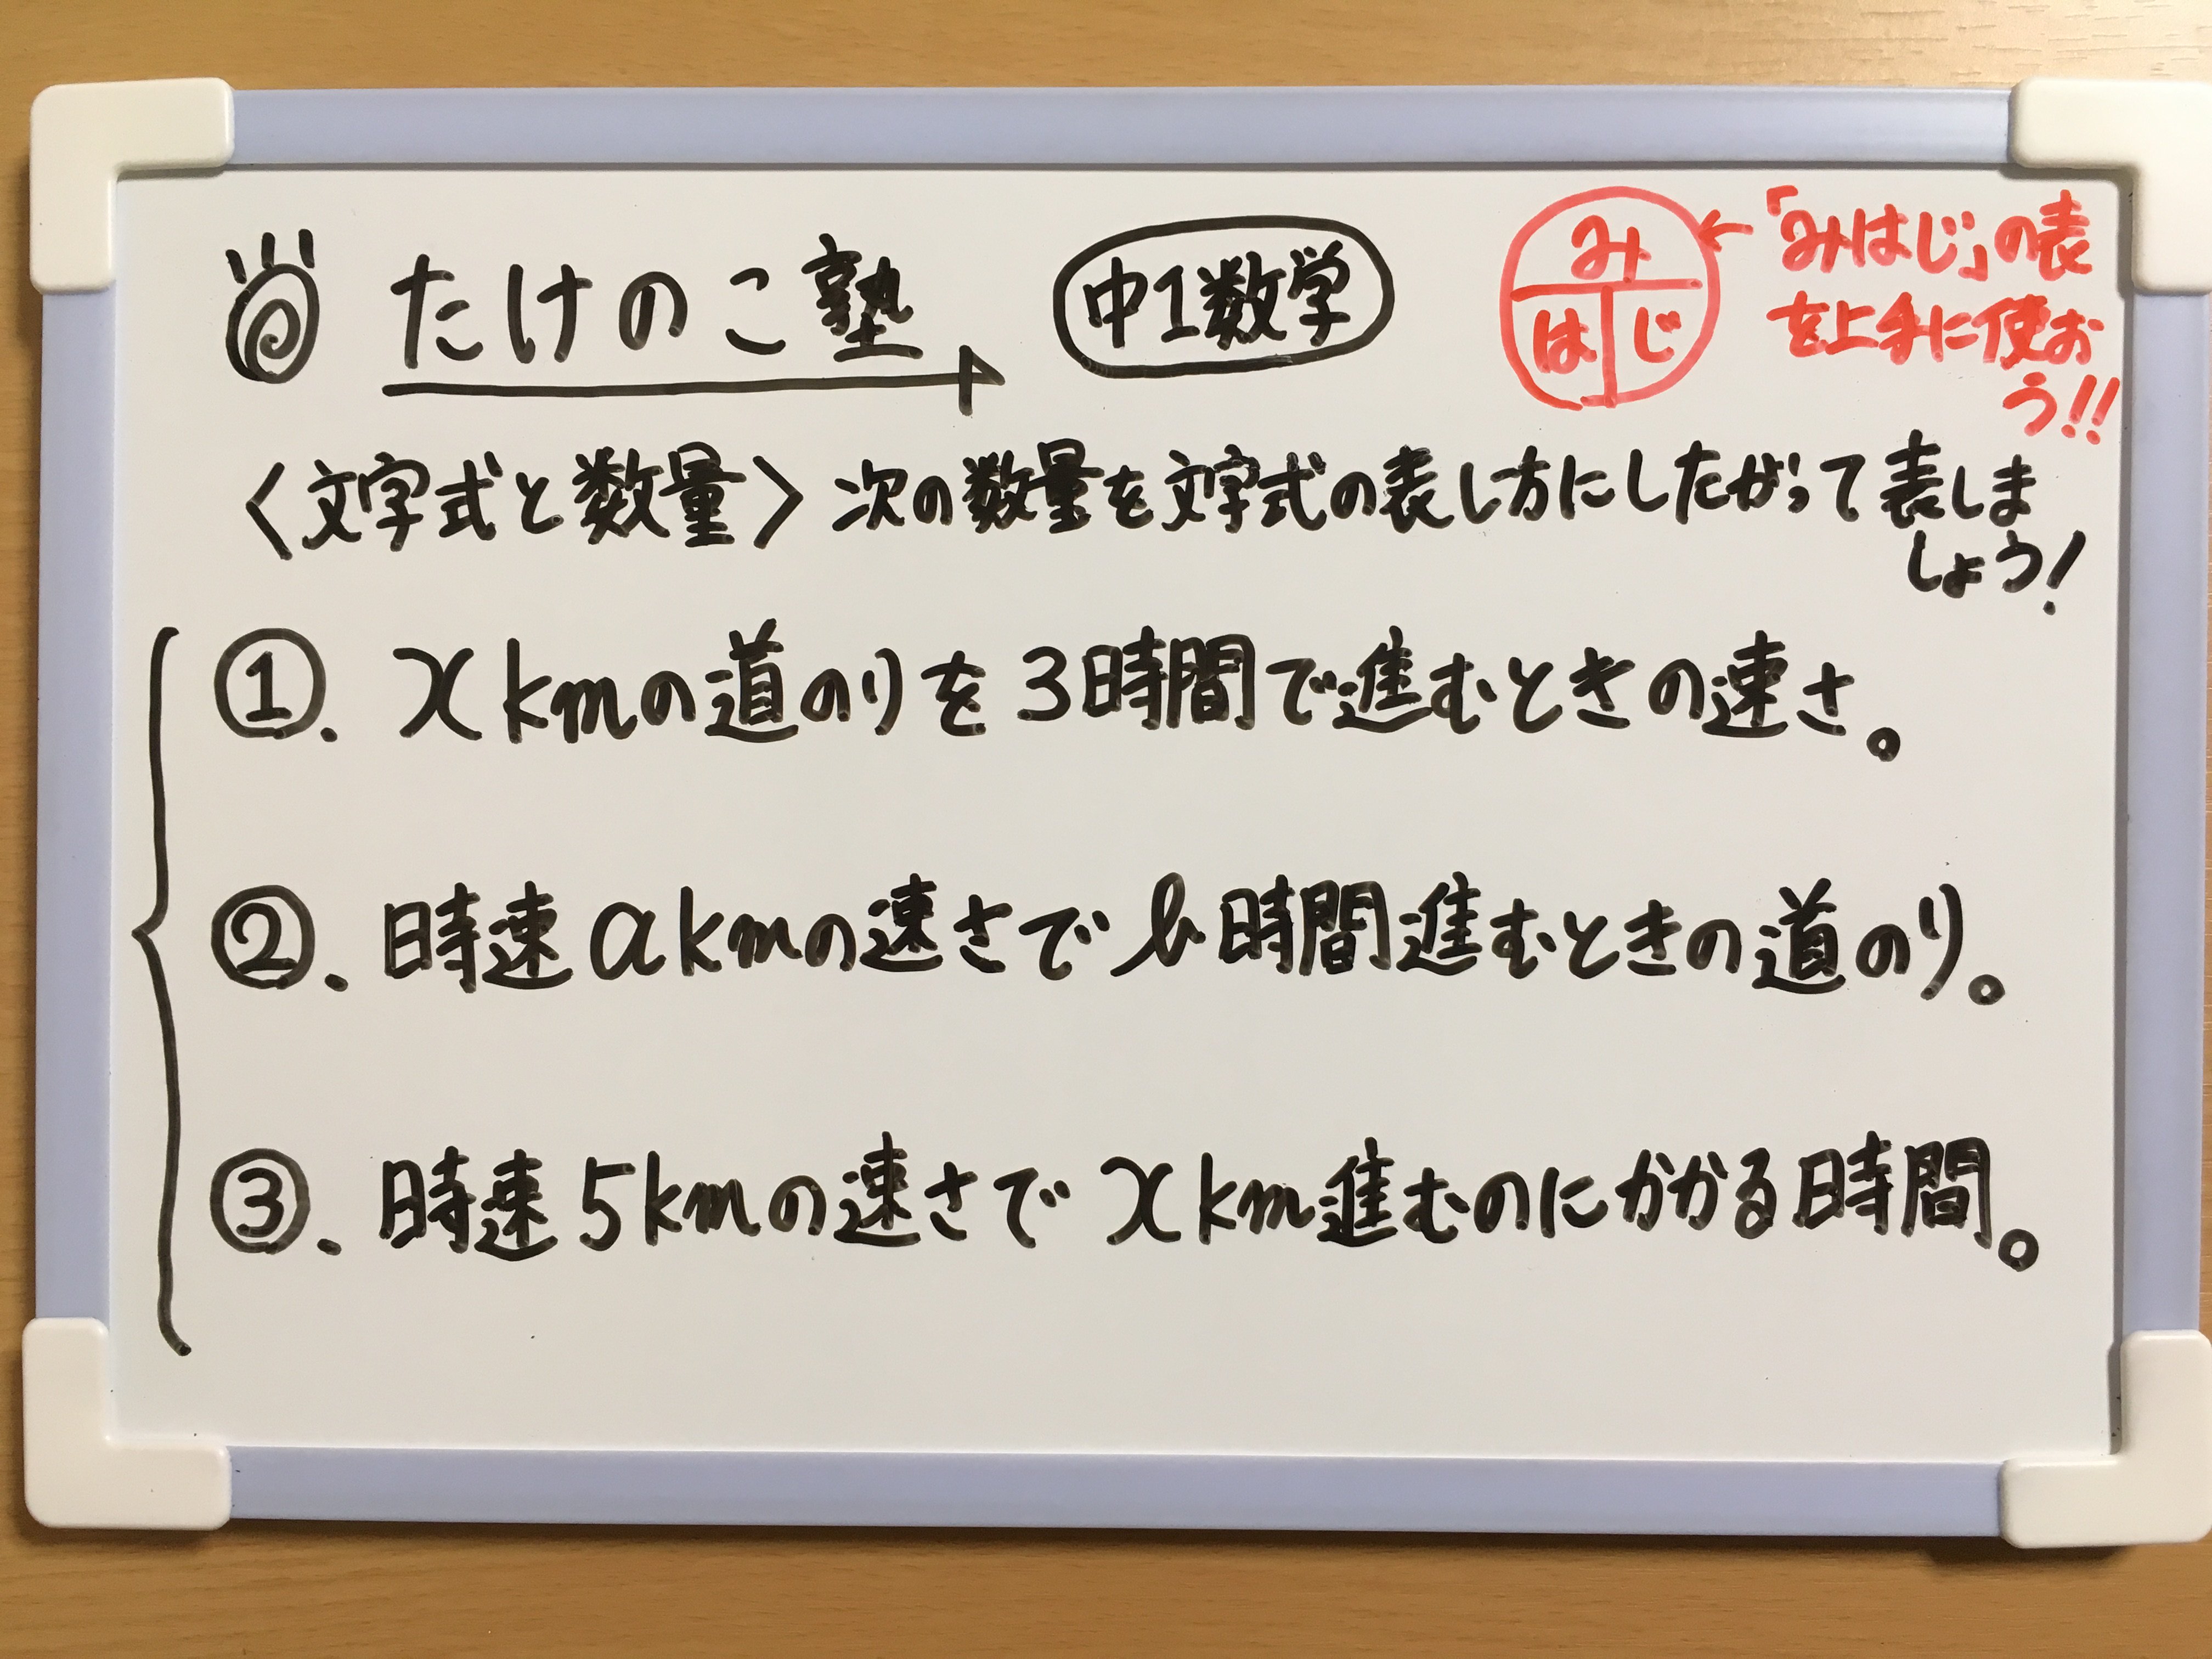 たけのこ塾 中1数学
み
は じ
「みはじ」の表
を上手に使お
う!!
〈文字式と数量〉次の数量を文字式の表し方にしたがって表しま
しょう!
①. x kmの道のりを3時間で進むときの速さ。
②. 時速akmの速さでb時間進むときの道のり。
③. 時速5kmの速さでx km進むのにかかる時間。